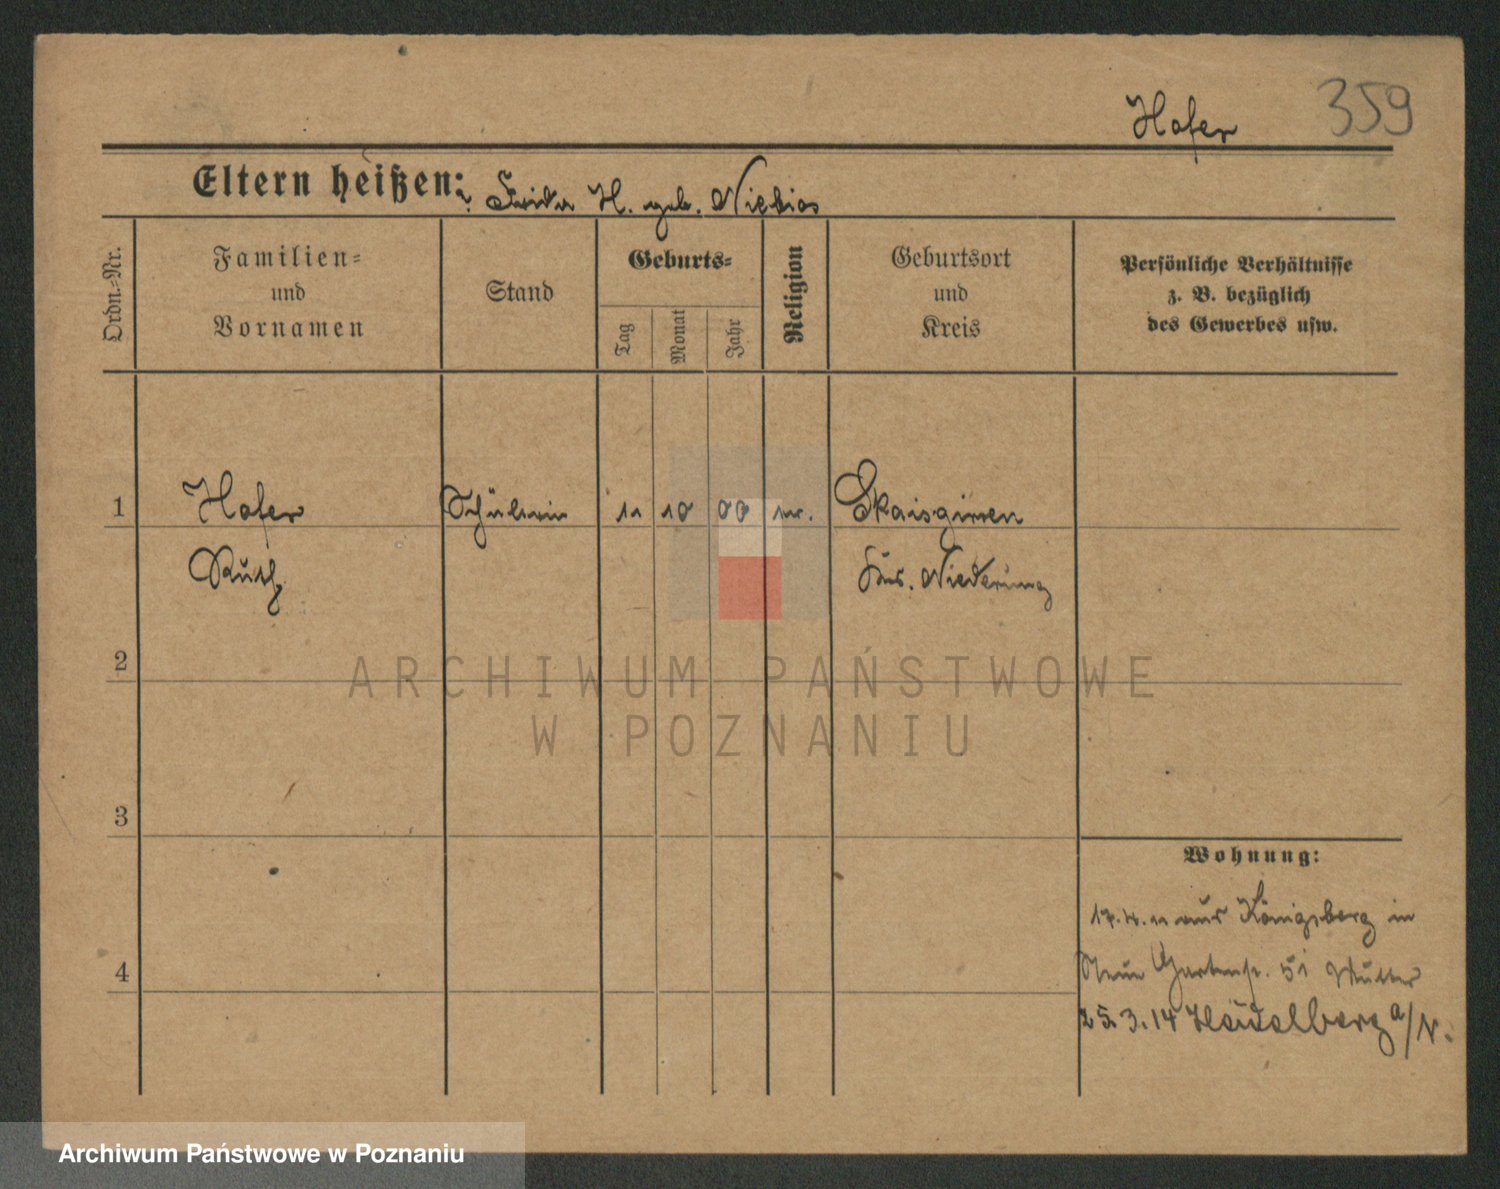 Hofer 359
Eltern heißen: Frida H. geb. Niebios
Ordn.-Nr.
Familien-
und
Vornamen
Stand
Geburts-
Tag
Monat
Jahr
Religion
Geburtsort
und
Kreis
Persönliche Verhältnisse
z. B. bezüglich
des Gewerbes usw.
1 Hofer Schülerin 11 10 00 Skaisgirren
Ruth Niederung
2
ARCHIWUM PAŃSTWOWE
W POZNANIU
3
Wohnung:
17.4.11 aus Königsberg in
Neue Gartenstr. 51 Mutter
4
25.3.14 Heidelberg a/N.
Archiwum Państwowe w Poznaniu